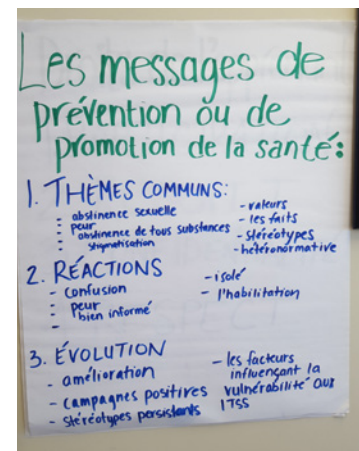 Les messages de
prévention ou de
promotion de la santé:
1. THÈMES COMMUNS:
- abstinence sexuelle
- peur
- abstinence de tous substances
- stigmatisation
- valeurs
- les faits
- stéréotypes
- hétéronormative
2. RÉACTIONS
- confusion
- peur
- bien informé
-
- isolé
- l'habilitation
3. ÉVOLUTION
- amélioration
- campagnes positives
- stéréotypes persistants
- les facteurs
influençant la
vulnérabilité aux
ITSS